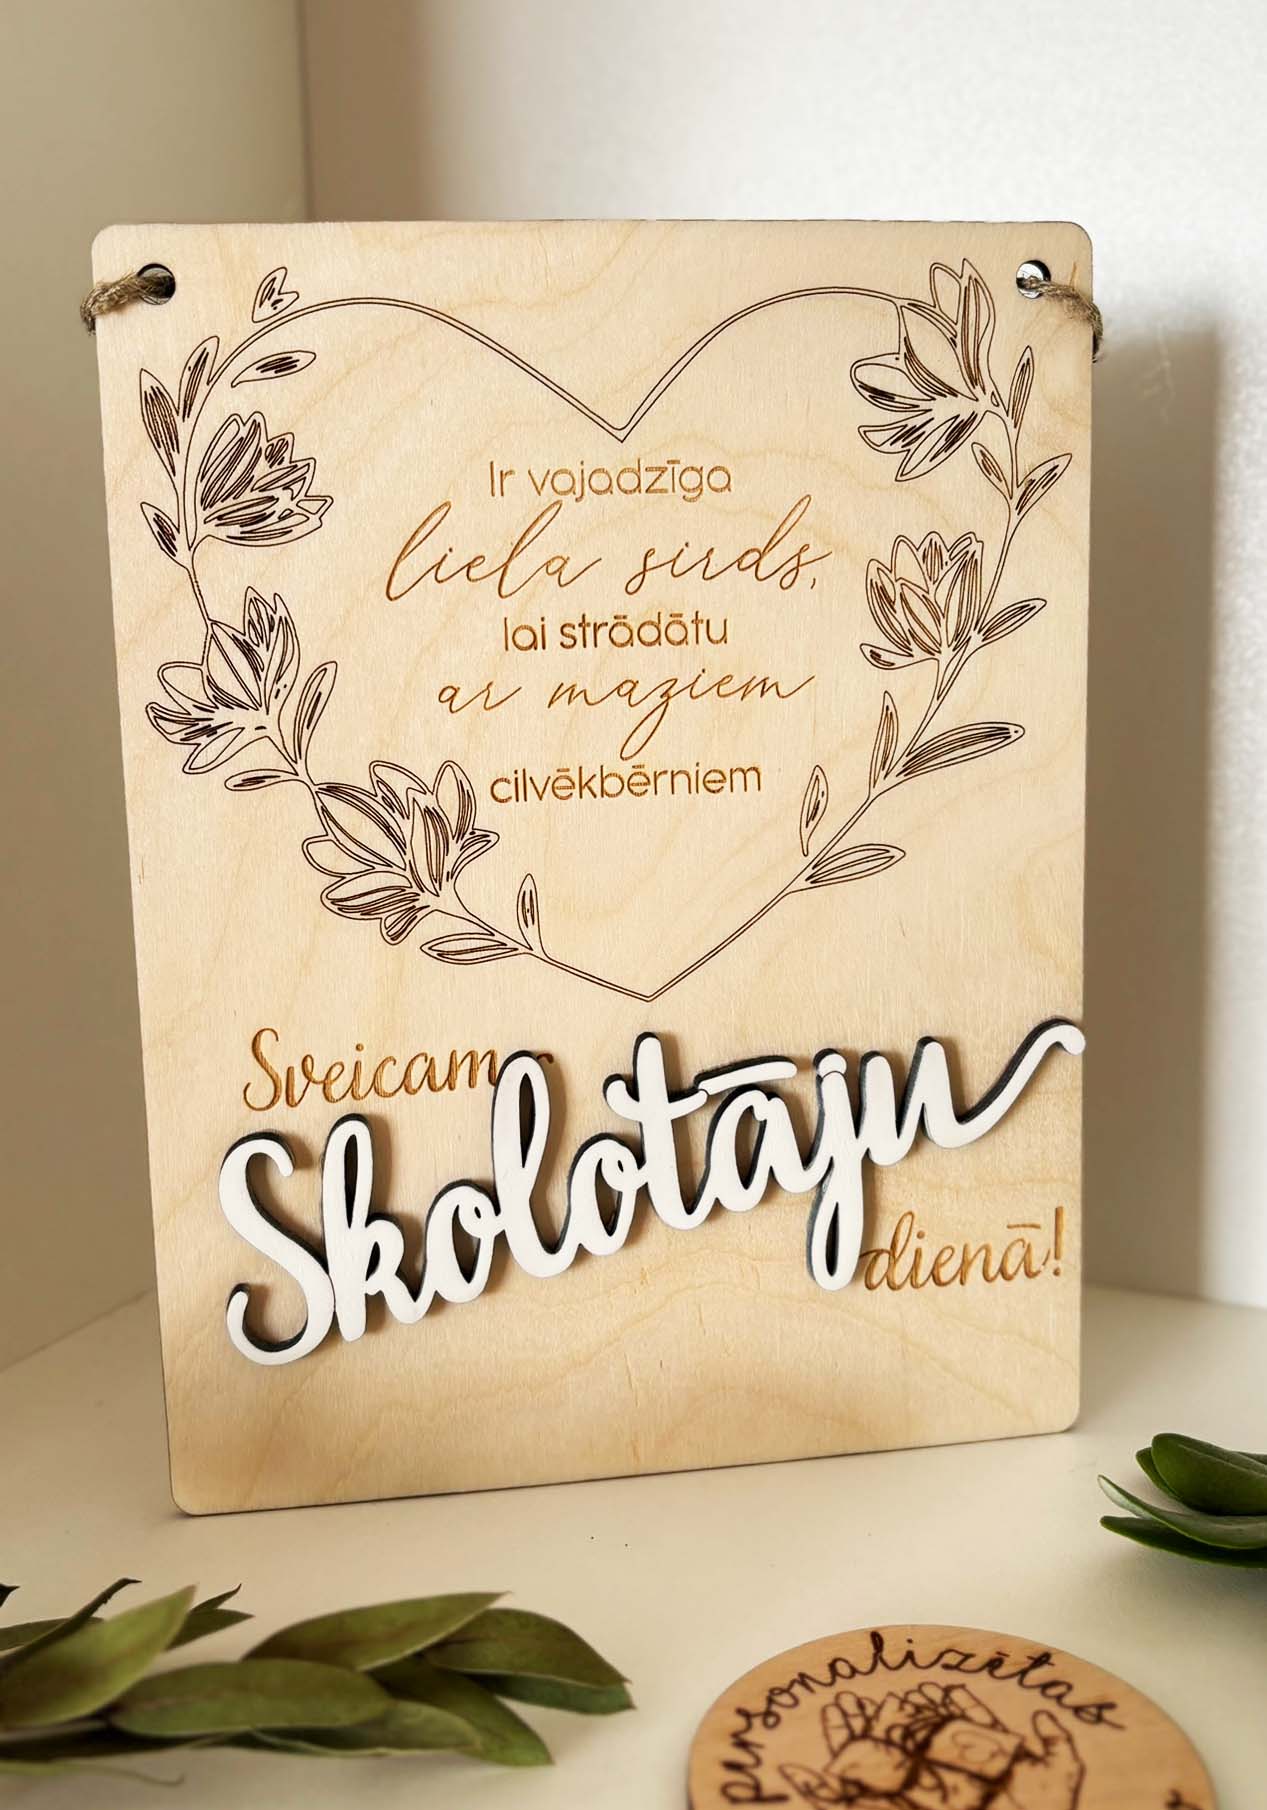 Ir vajadzīga
liela sirds,
lai strādātu
ar maziem
cilvēkbērniem
Sveicam
Skolotāju
dienā!
personalizētas